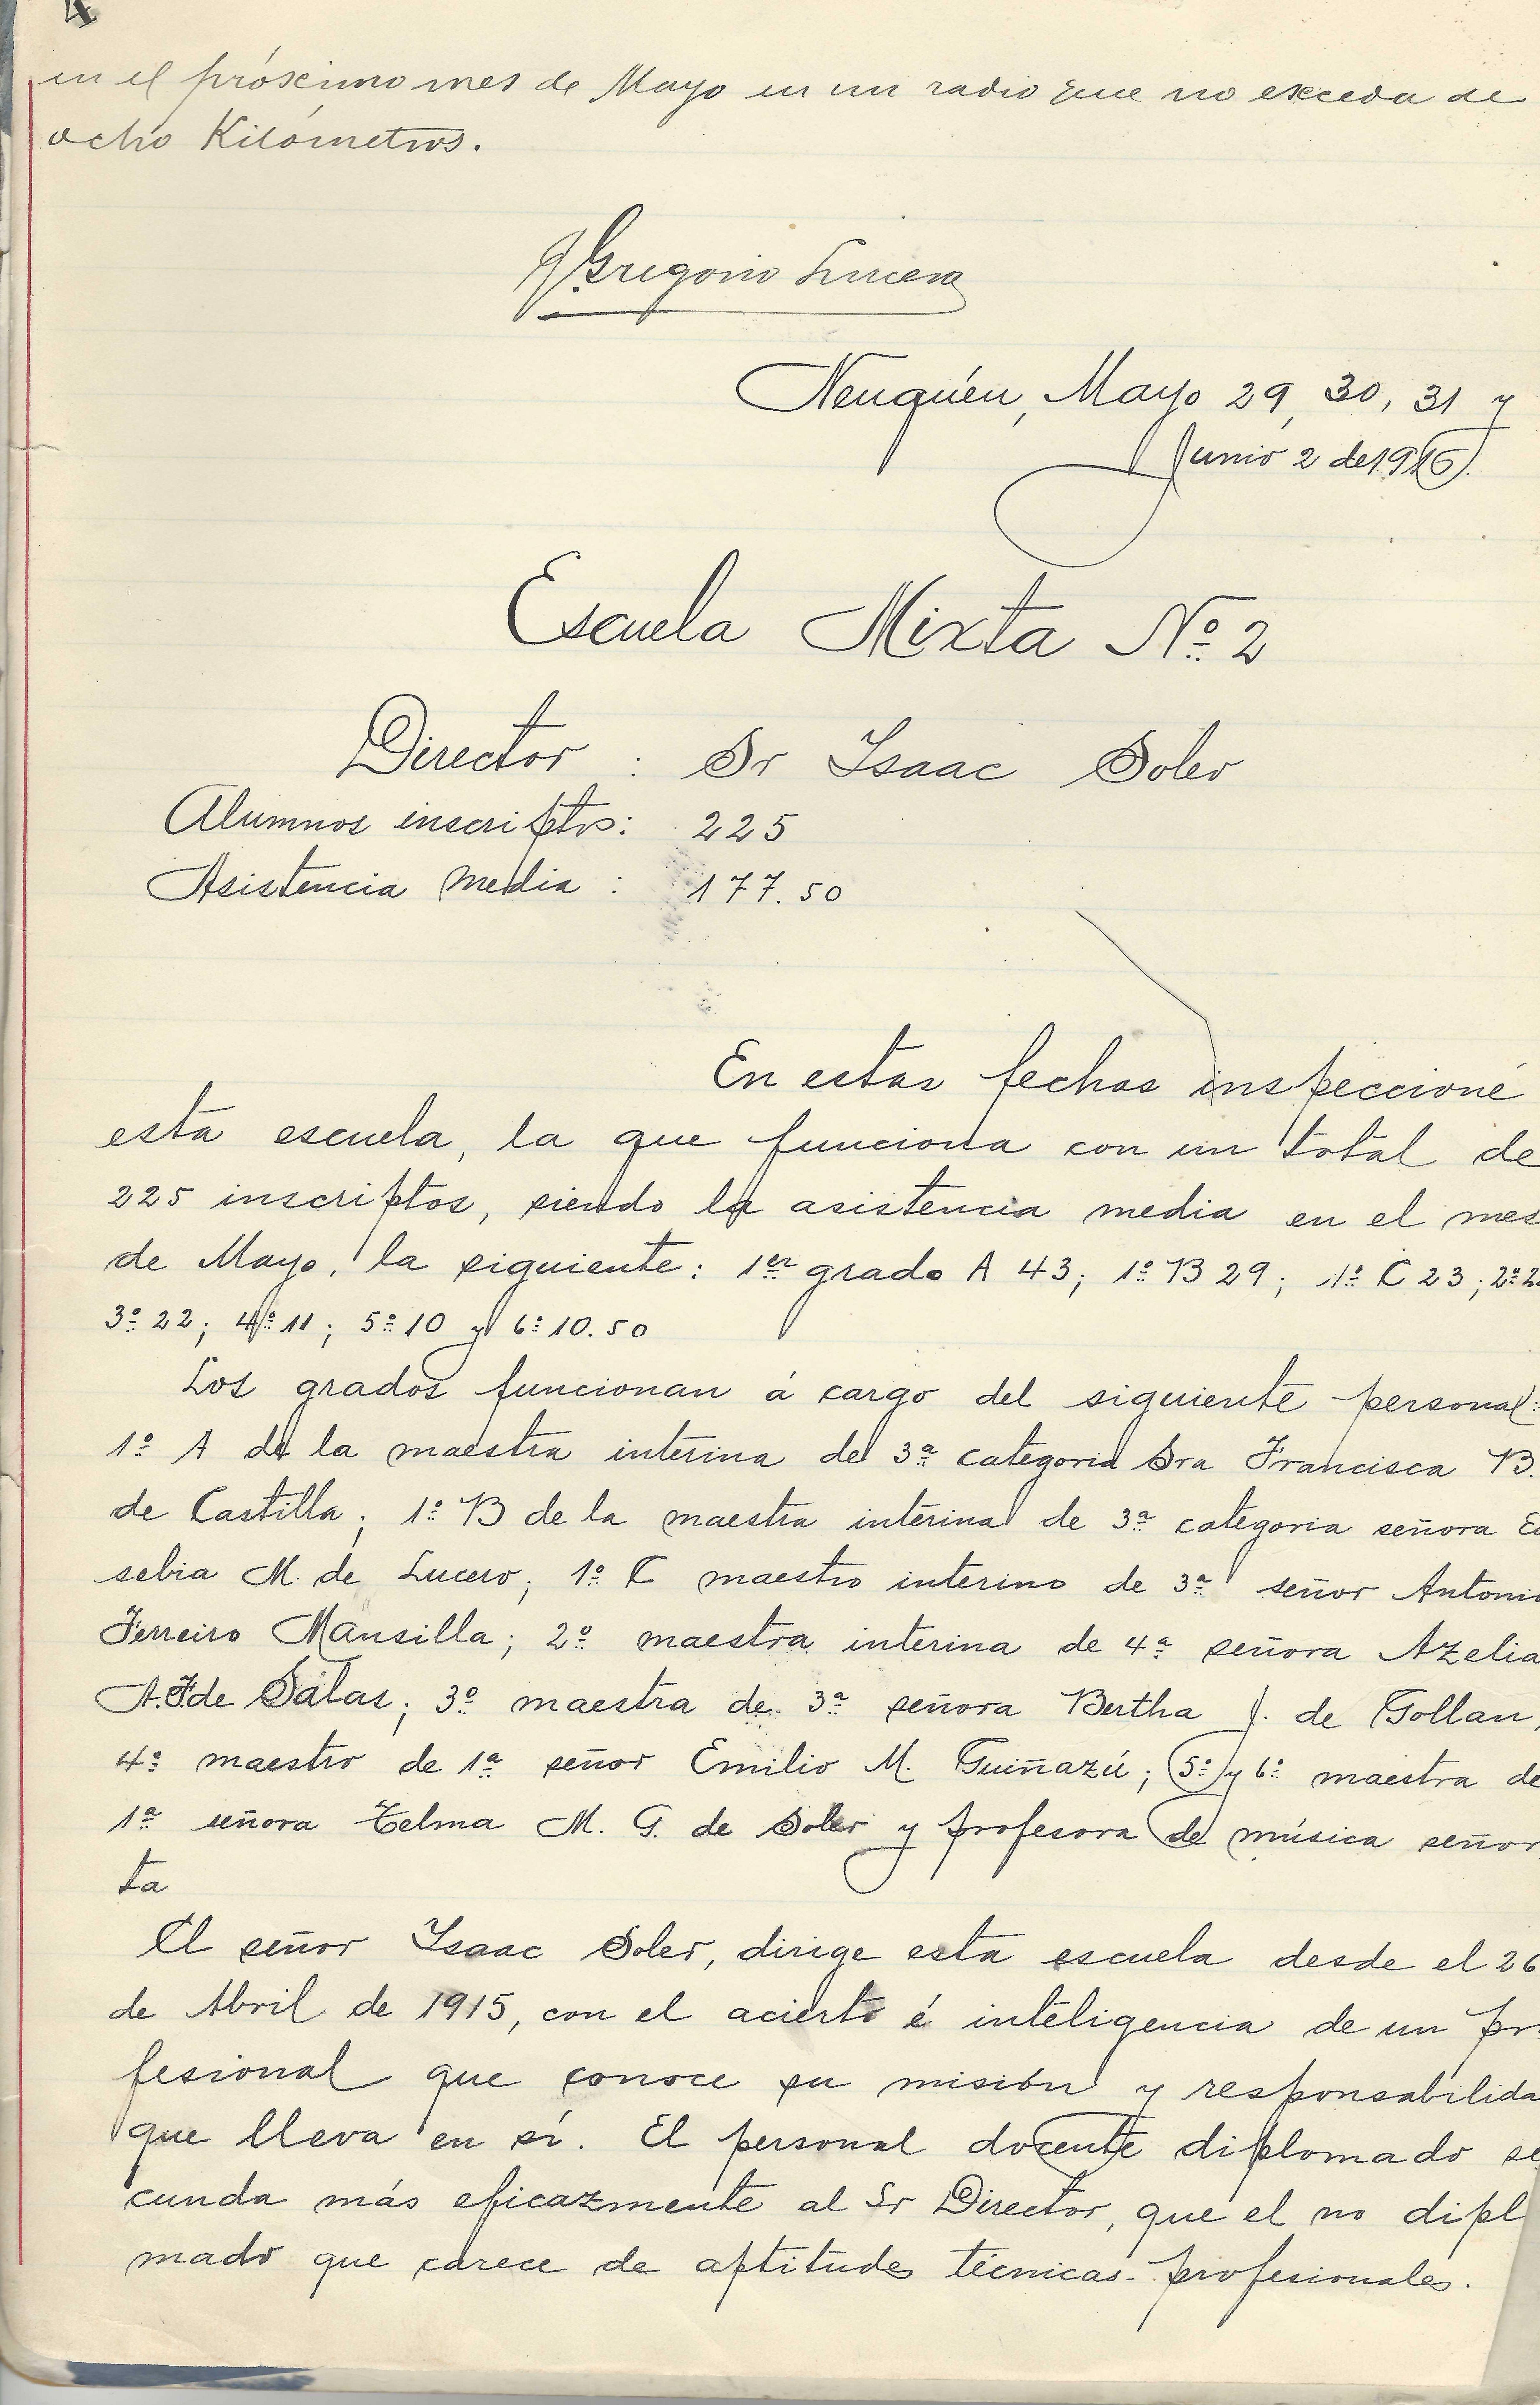 4
en el próximo mes de Mayo en un radio que no exceda de
ocho Kilómetros.
Gregorio Lucero
Neuquén, Mayo 29, 30, 31 y
Junio 2 de 1916.
Escuela Mixta Nº 2
Director : Sr Isaac Soler
Alumnos inscriptos: 225
Asistencia media : 177.50
En estas fechas inspeccioné
esta escuela, la que funciona con un total de
225 inscriptos, siendo la asistencia media en el mes
de Mayo, la siguiente: 1er grado A 43; 1º B 29; 1º C 23; 2º 2
3º 22; 4º 11; 5º 10 y 6º 10.50
Los grados funcionan á cargo del siguiente personal:
1º A de la maestra interina de 3ª categoria Sra Francisca B.
de Castilla; 1º B de la maestra interina de 3ª categoria señora Eu
sebia M. de Lucero; 1º C maestro interino de 3ª señor Antonio
Ferreiro Mansilla; 2º maestra interina de 4ª señora Azelia
A. F. de Salas; 3º maestra de 3ª señora Bertha J. de Gollan,
4º maestro de 1ª señor Emilio M. Guiñazú; 5º y 6º maestra de
1ª señora Telma M. G. de Soler y profesora de música señori
ta
El señor Isaac Soler, dirige esta escuela desde el 26
de Abril de 1915, con el acierto é inteligencia de un pro
fesional que conoce su misión y responsabilida
que lleva en sí. El personal docente diplomado se
cunda más eficazmente al Sr Director, que el no dipl
mado que carece de aptitudes técnicas-profesionales.